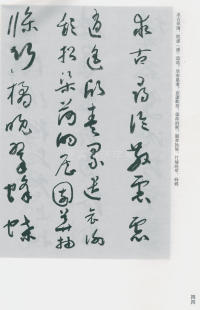 求古尋論，散慮（慮）逍遙。欣奏累遣，慼謝歡招。渠荷的歷，園莽抽條。枇杷晚翠，梧桐
求古尋論散慮慮
逍遙欣奏累遣慼謝
歡招渠荷的歷園莽抽
條枇杷晚翠梧桐
四四